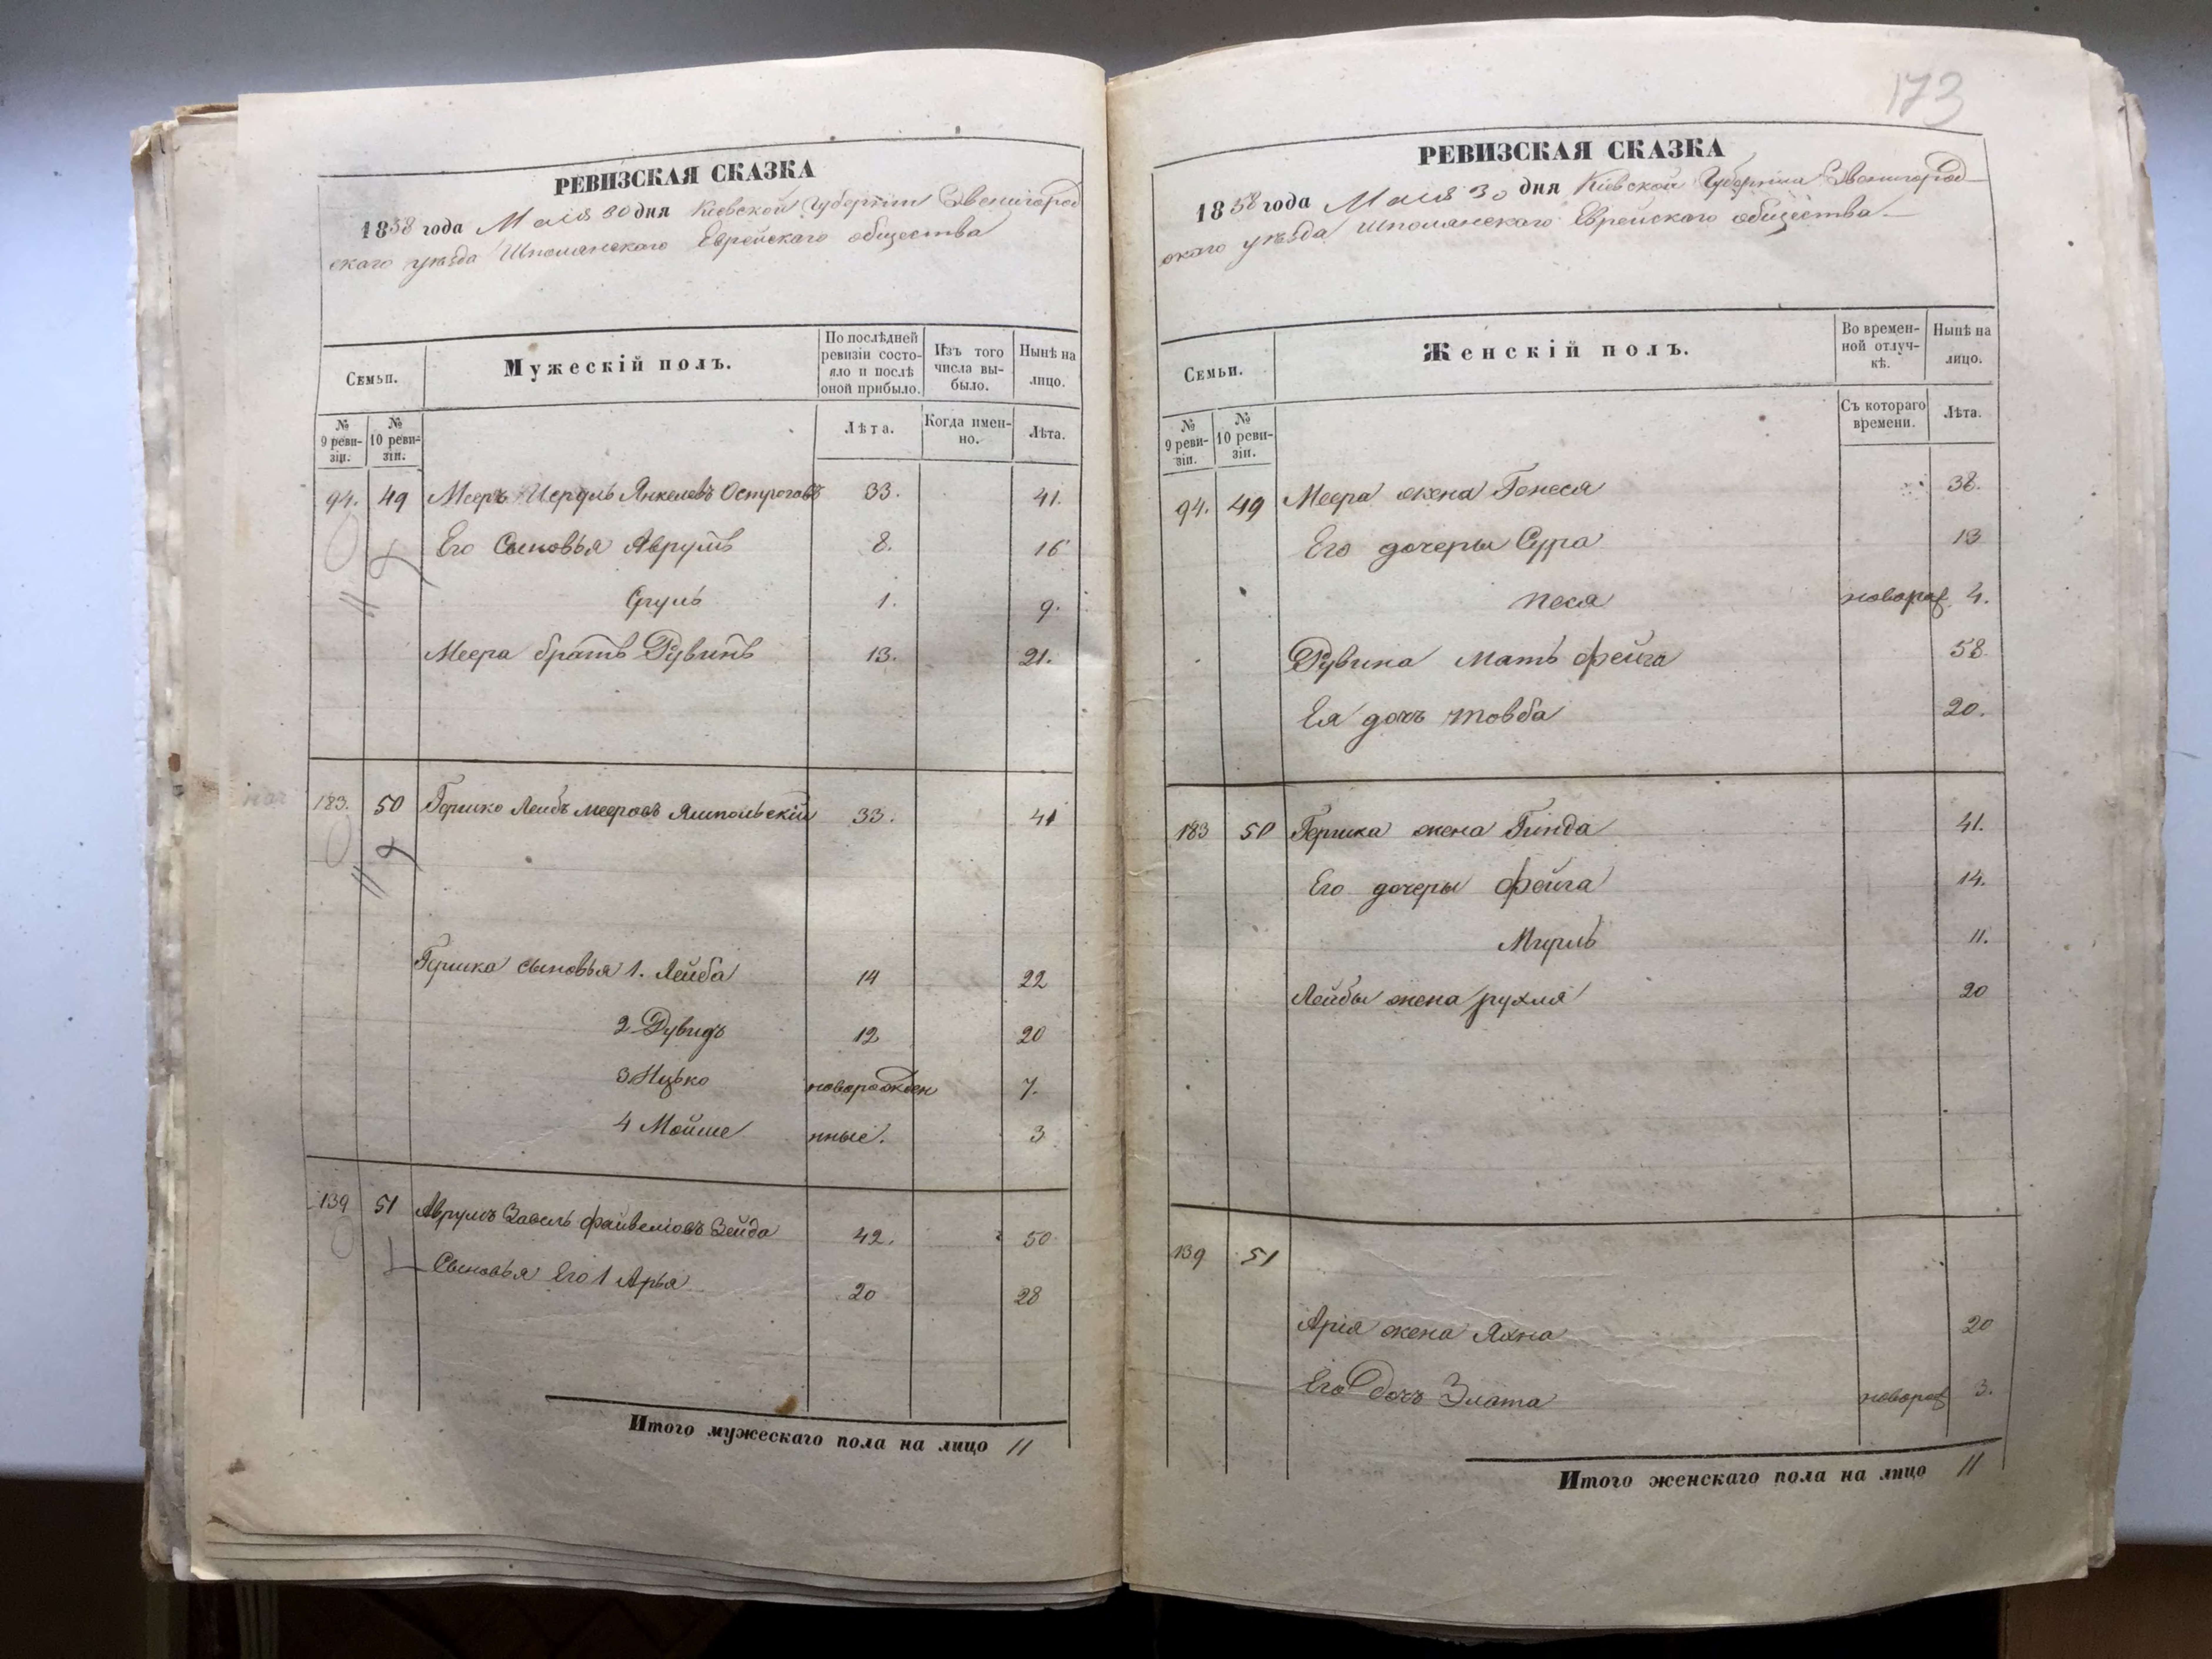 РЕВИЗСКАЯ СКАЗКА
1858 года Маія 30 дня Кіевской Губерніи Звенигород
скаго уѣзда Шполянскаго Еврейскаго общества
Семьи.
Мужескій полъ.
По послѣдней ревизіи состояло и послѣ оной прибыло.
Изъ того числа выбыло.
Нынѣ на лицо.
№ 9 ревизіи.
№ 10 ревизіи.
Лѣта.
Когда именно.
Лѣта.
94. 49 Мееръ Янкелевъ 33. 41.
Его Сыновья Аврумъ 8. 16
Сруль 1. 9.
Меера братъ Рувинъ 13. 21.
183. 50 Гершко Лейбъ Мееровъ Ямпольскій 33. 41
Гершка сыновья 1. Лейба 14 22
2 Дувидъ 12 20
3 Ицько новорожден 7.
4 Мойше нные. 3
139 51 Аврумъ Завель Файвеліовъ Зейда 42. 50
Сыновья Его 1 Арья 20 28
Итого мужескаго пола на лицо 11
173
РЕВИЗСКАЯ СКАЗКА
1858 года Маія 30 дня Кіевской Губерніи Звенигород
скаго уѣзда Шполянскаго Еврейскаго общества
Семьи.
Женскій полъ.
Во временной отлучкѣ.
Нынѣ на лицо.
№ 9 ревизіи.
№ 10 ревизіи.
Съ котораго времени.
Лѣта.
94. 49 Меера жена Генеся 38.
Его дочеры Сура 13
Песя новорож 4.
Рувина мать Фейга 58.
Ея дочъ Товба 20.
183 50 Гершка жена Гинда 41.
Его дочеры Фейга 14.
11.
Лейбы жена Рухля 20
139 51
Арія жена Яхна 20
Его дочъ Злата новорож 3.
Итого женскаго пола на лицо 11